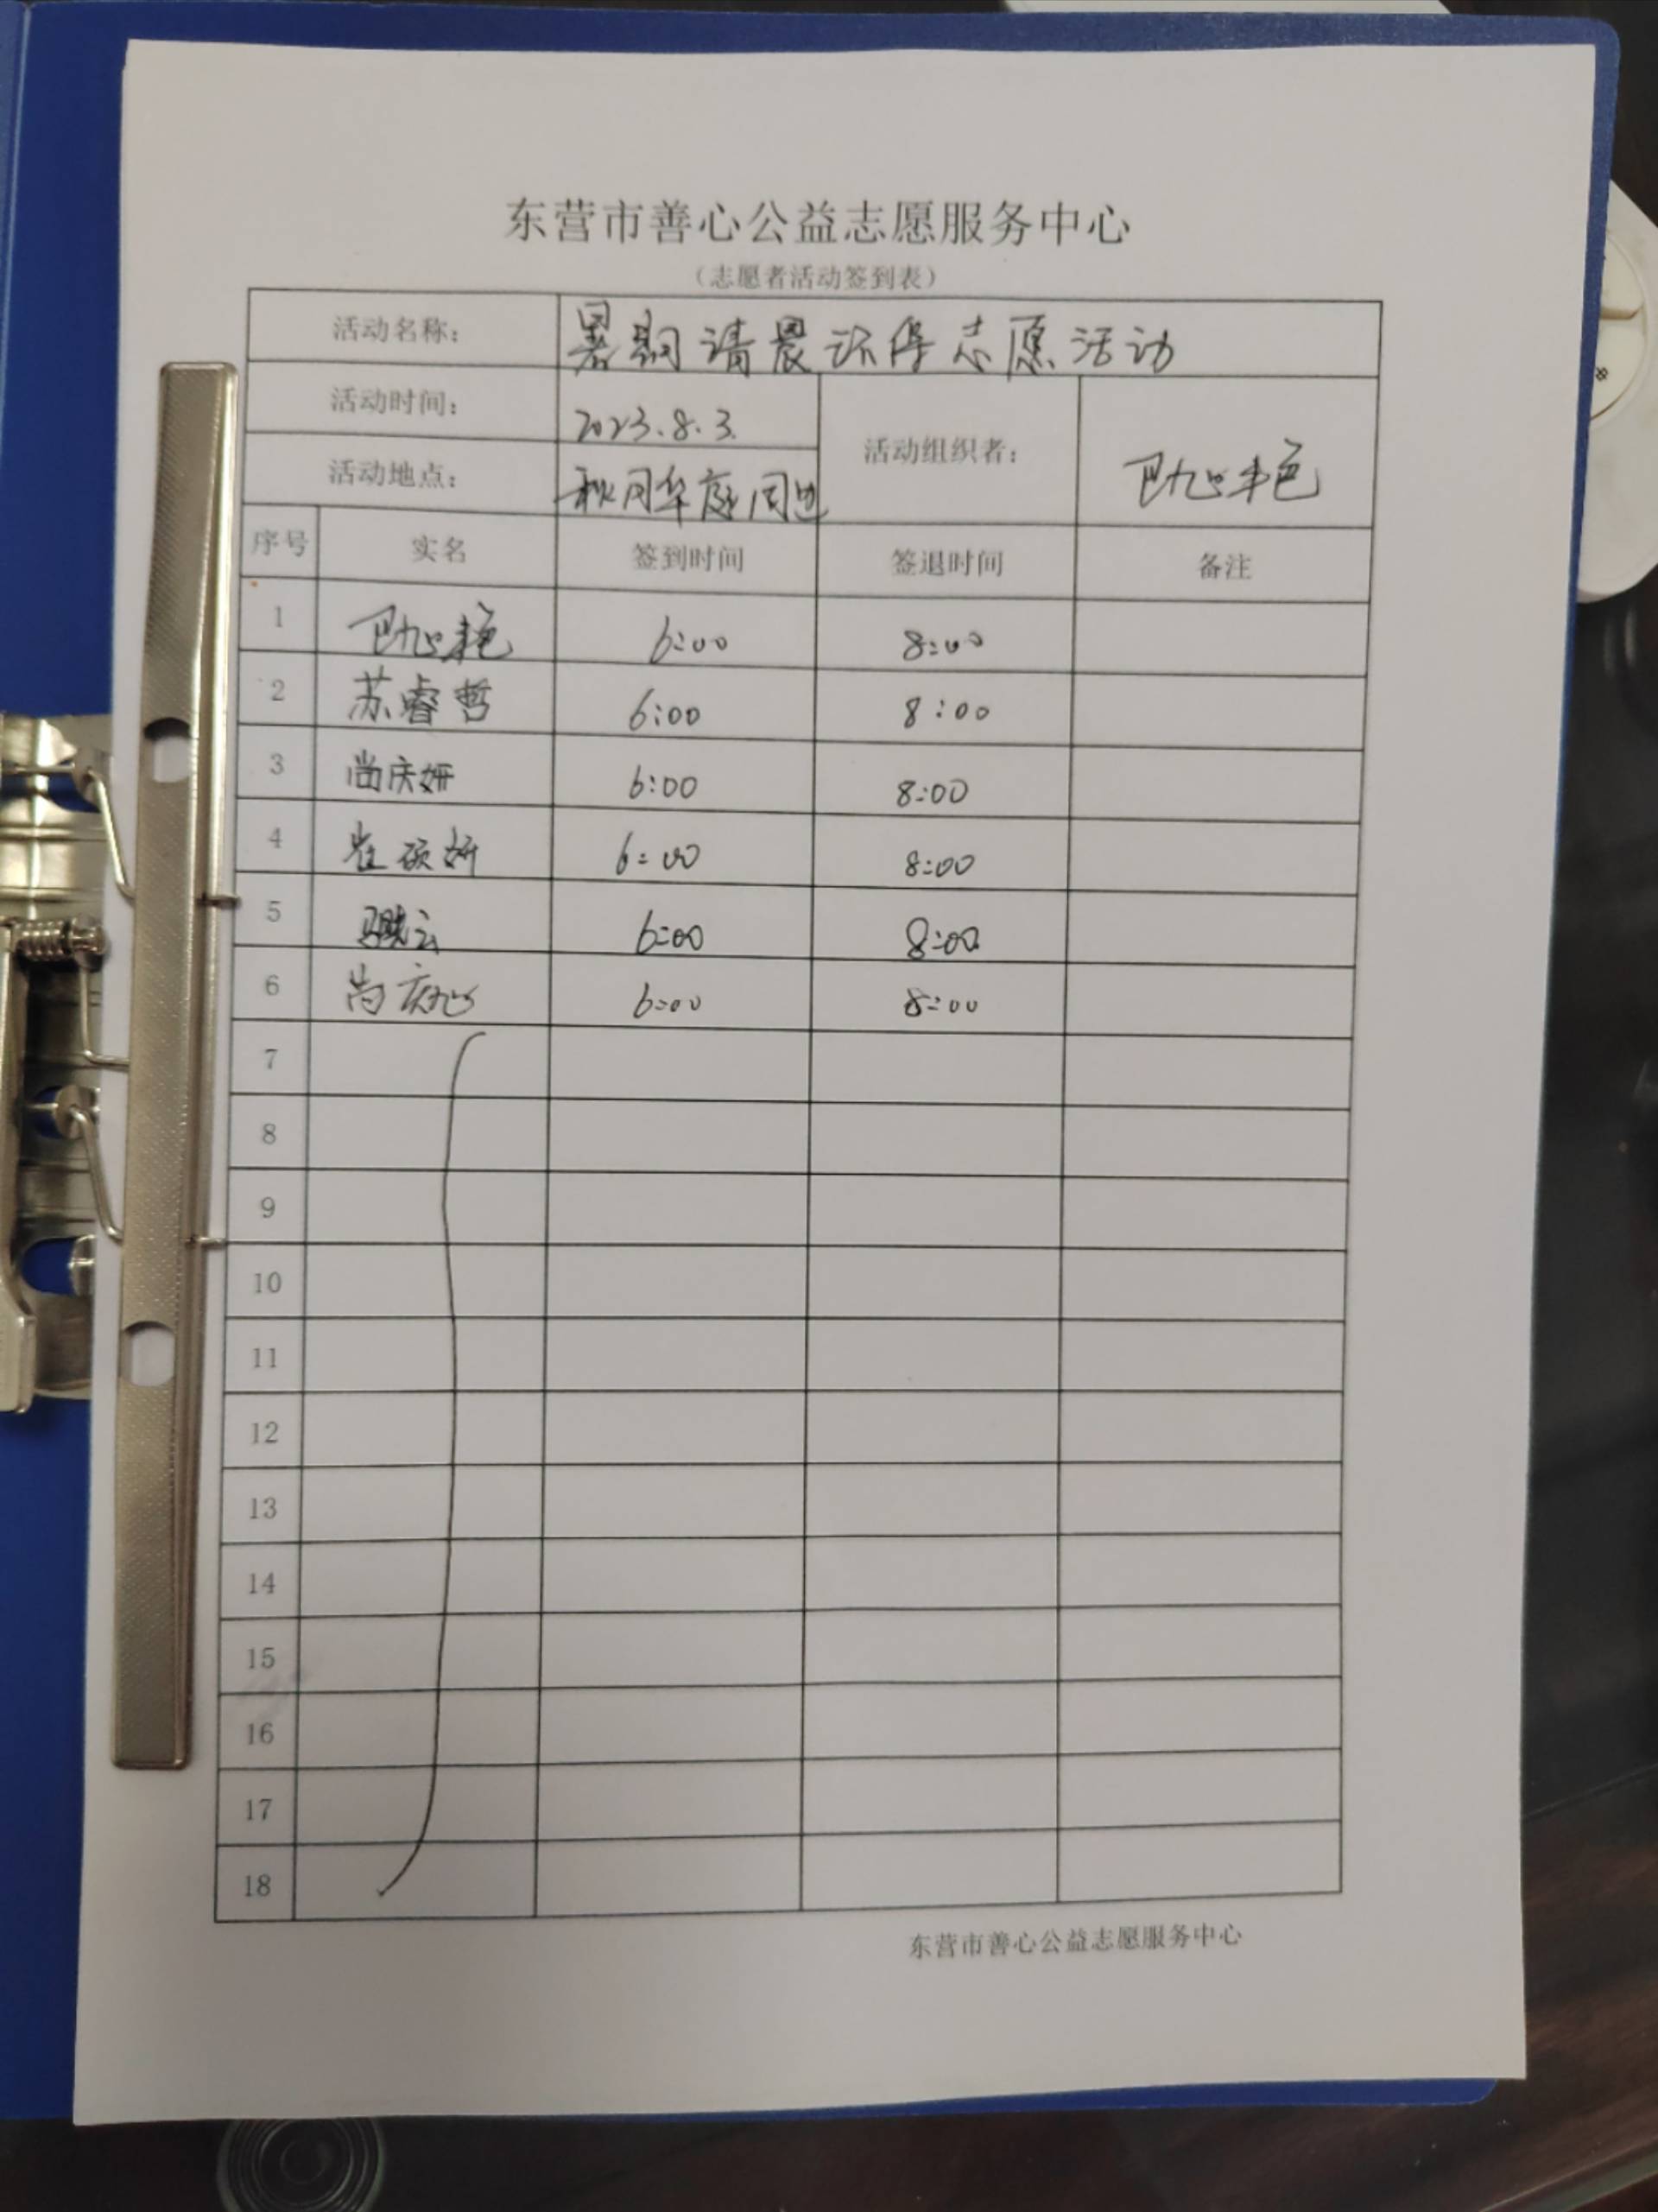 东营市善心公益志愿服务中心
（志愿者活动签到表）
活动名称： 暑期清晨环保志愿活动
活动时间： 2023.8.3.
活动组织者：
活动地点： 秋月华庭周边
序号 实名 签到时间 签退时间 备注
1 6:00 8:00
2 苏睿哲 6:00 8:00
3 尚庆妍 6:00 8:00
4 崔硕妍 6:00 8:00
5 6:00 8:00
6 尚庆 6:00 8:00
7
8
9
10
11
12
13
14
15
16
17
18
东营市善心公益志愿服务中心